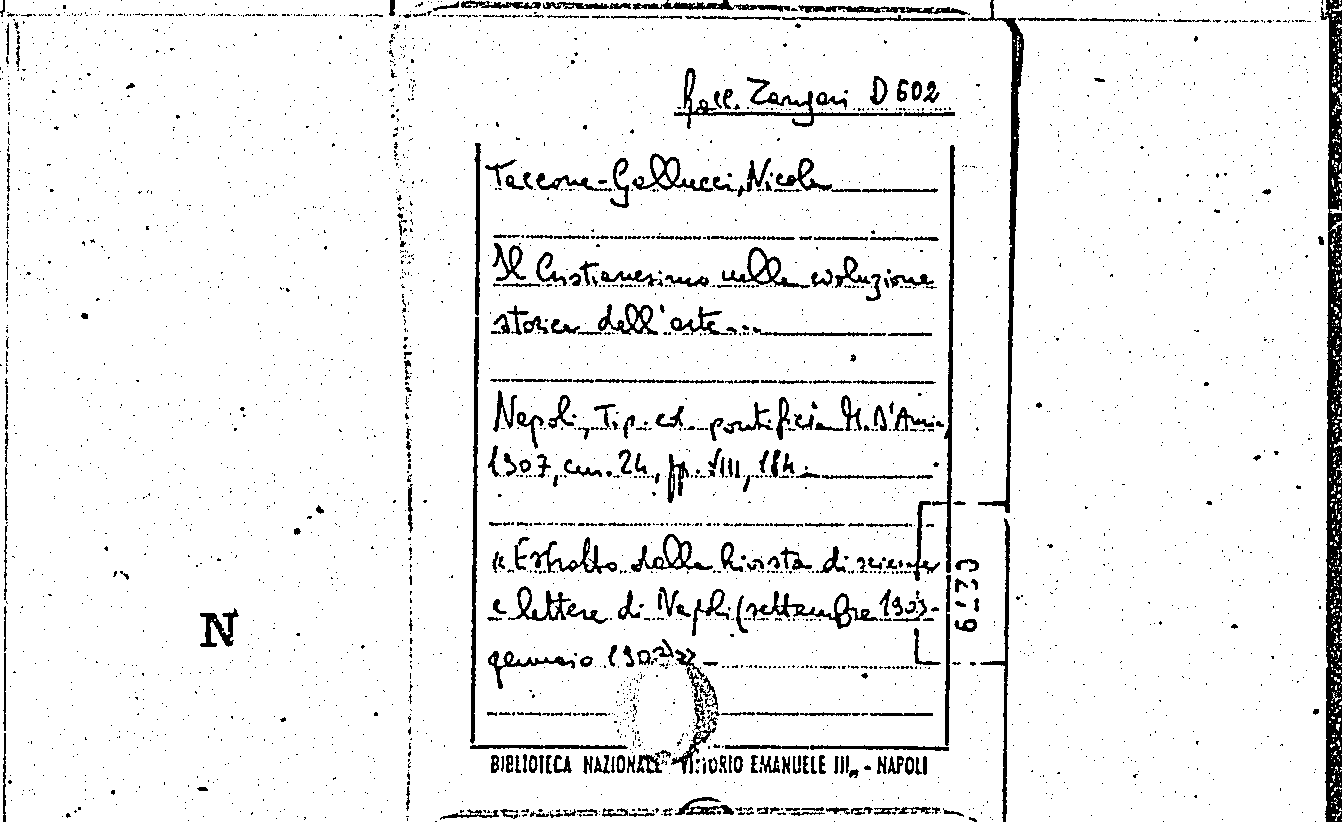 Racc. Zangari D 602
Taccone-Gallucci, Nicola
Il Cristianesimo nella evoluzione
storica dell'arte...
Napoli, Tip. ed. pontificia M. D'Auria,
1907, cm. 24, pp. VIII, 184.
« Estratto dalla Rivista di scienze
e lettere di Napoli (settembre 1903-
gennaio
N
BIBLIOTECA NAZIONALE VITTORIO EMANUELE III„ - NAPOLI